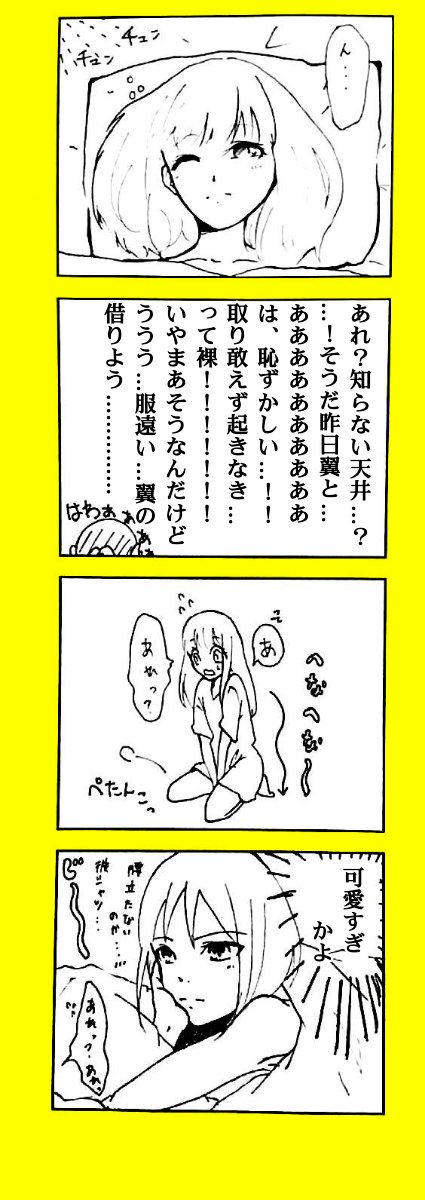 ん…
チュン
チュン
あれ？知らない天井…？
…！そうだ昨日翼と…
ああああああああああ
は、恥ずかしい…！！
取り敢えず起きなき…
って裸！！！！！！！
いやまあそうなんだけど
ううう…服遠い…翼の
借りよう…………
はわぁぁぁぁ
へなへな〜
あ
あれっ？
ぺたんこっ
可愛すぎ
かよ
腰立たない
のか…!!!
彼シャツ…
じーー
あれっ？あれ。